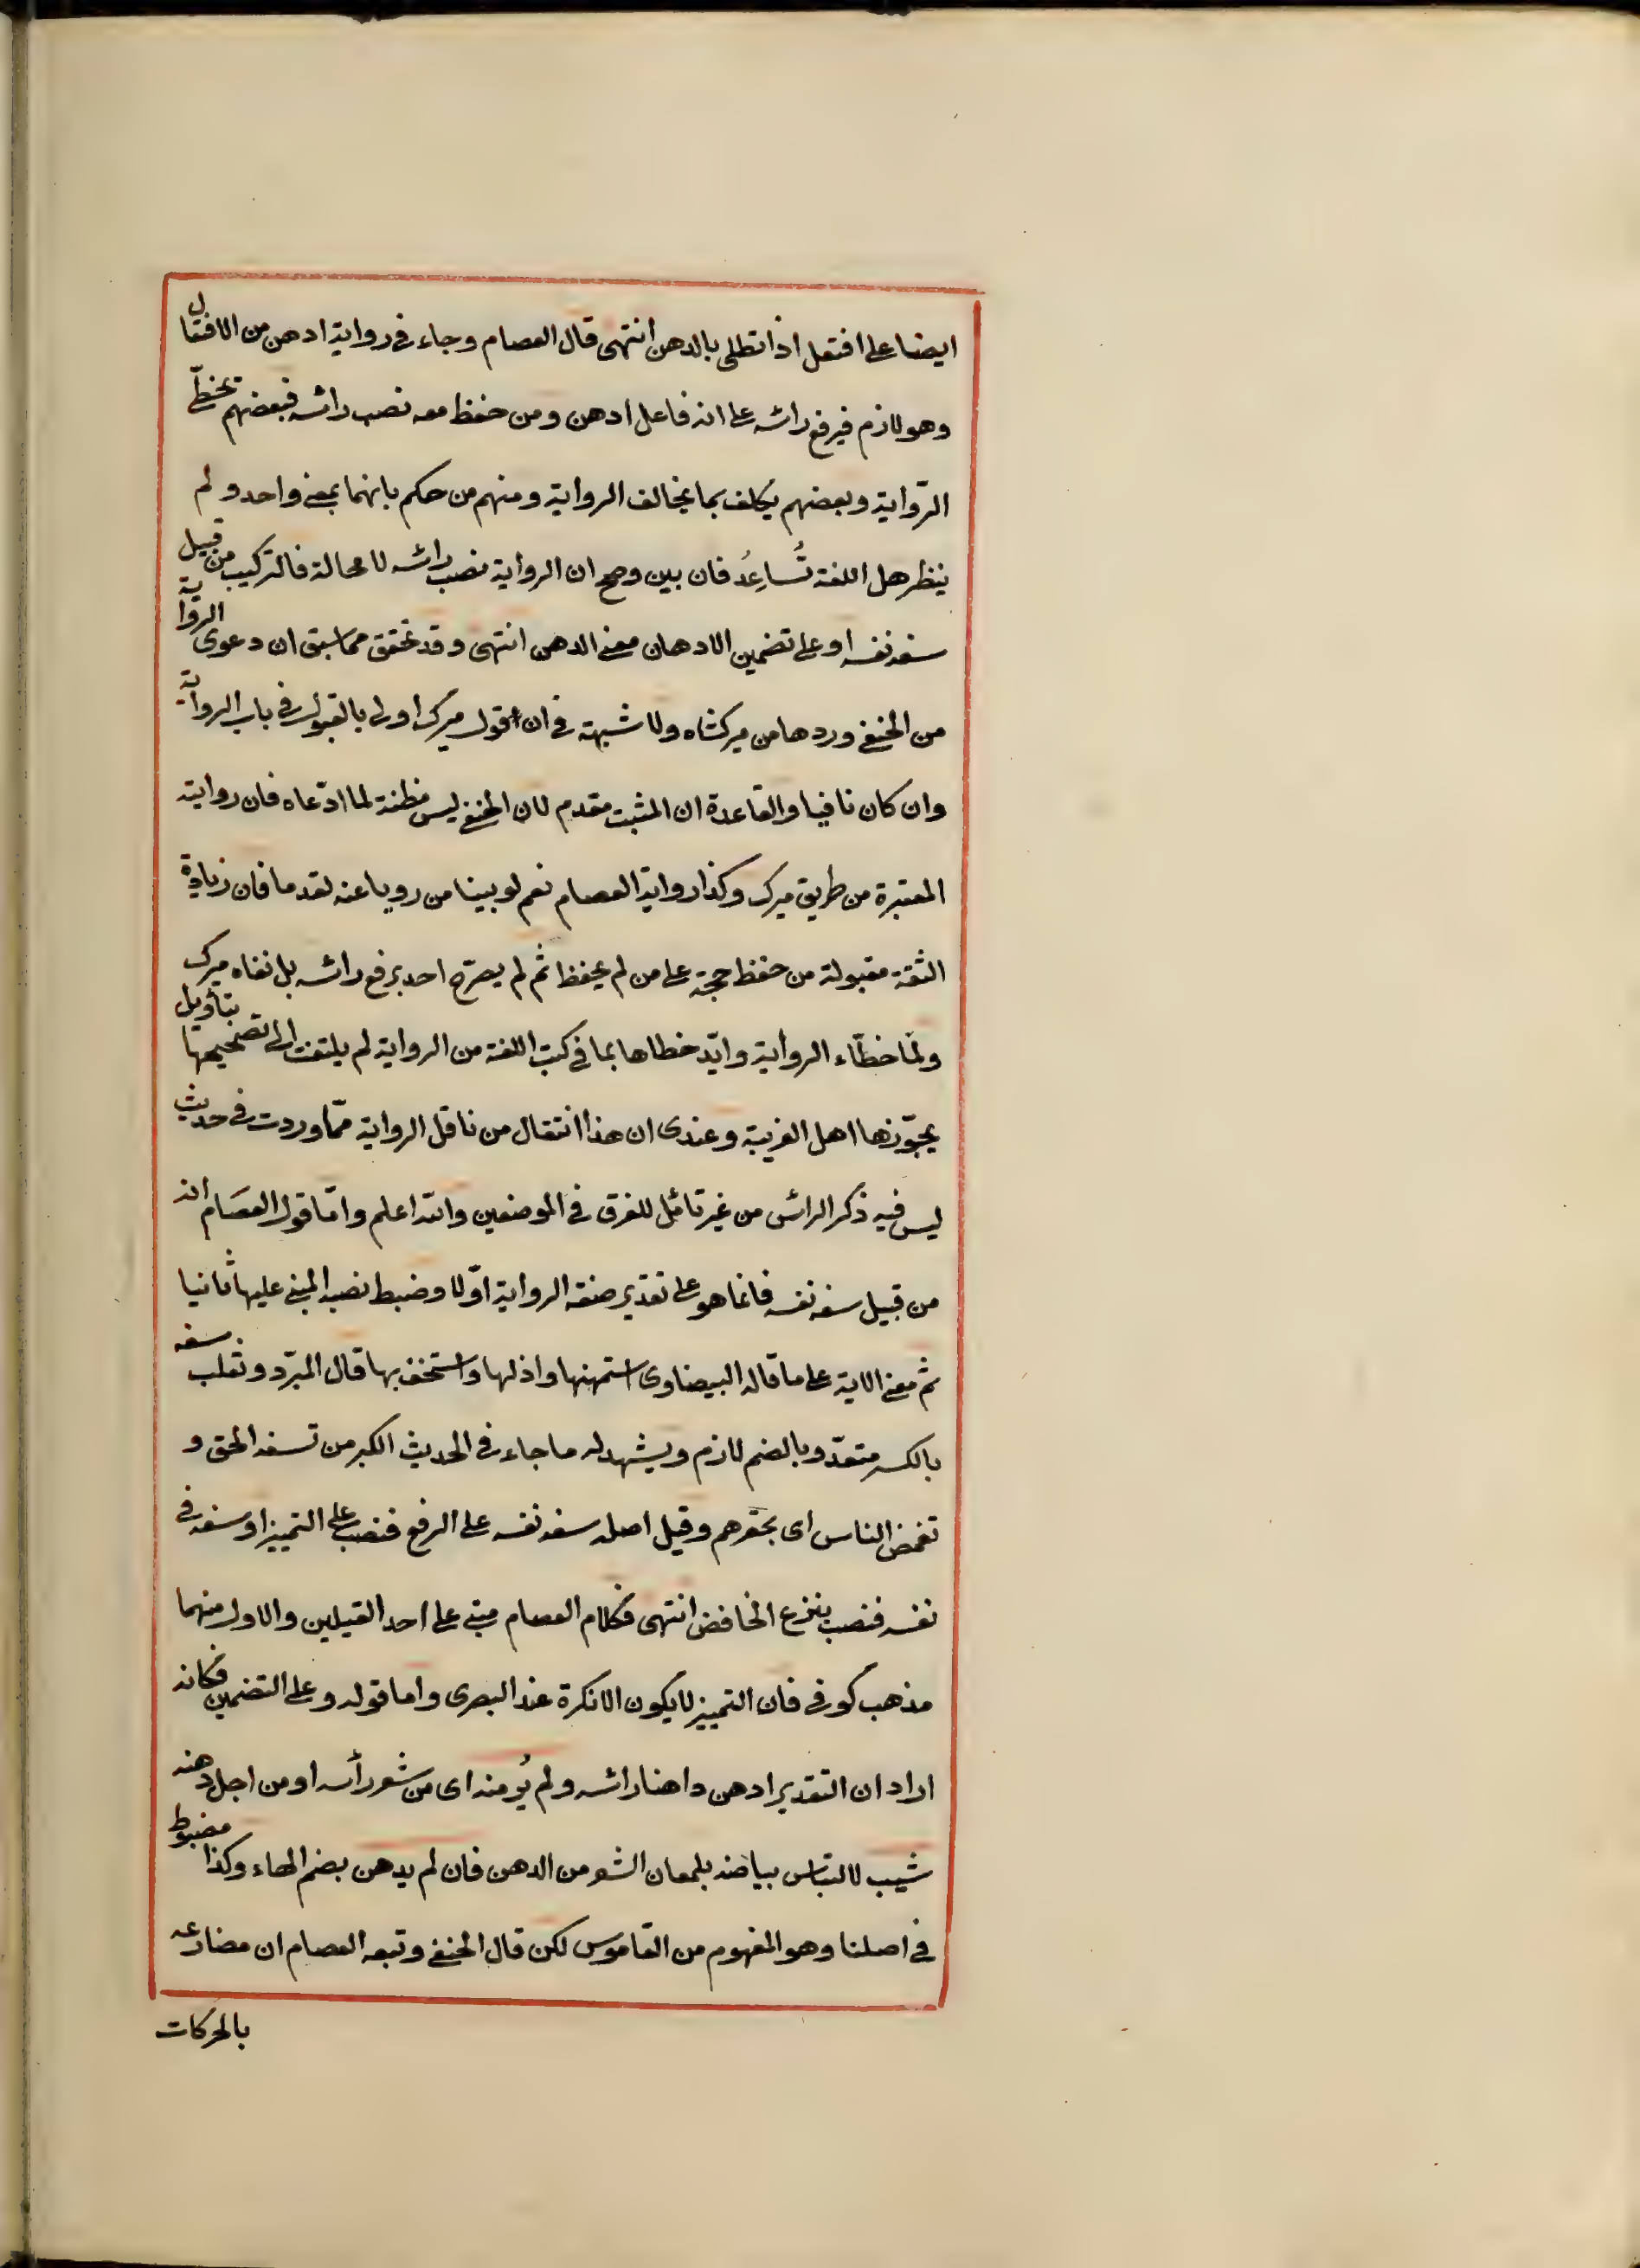 ايضا على افتعل اذا تطلى بالدهن انتهى قال العصام وجاء فى رواية ادهن من الافتعال
وهو لازم فيرفع راسه على انه فاعل ادهن ومن حفظ معه نصب راسه فبعضهم يخطّئ
الرّواية وبعضهم يكلف بما يخالف الرواية ومنهم من حكم بانهما بمعنى واحد ولم
ينظر هل اللغة تُساعِدُ فان بين وصح ان الرواية نصب راسه لا محالة فالتركيب من قبيل
سفه نفسه او على تضمين الادهان معنى الدهن انتهى وقد تحقق مما سبق ان دعوى الرواية
من الحنفى وردها من ميركشاه ولا شبهة فى ان قول ميرك اولى بالقبول فى باب الرواية
وان كان نافيا والقاعدة ان المثبت مقدم لان الحنفى ليس مظنة لما ادّعاه فان رواية
المعتبرة من طريق ميرك وكذا رواية العصام نعم لو بينا من رويا عنه لقدما فان زيادة
الثقة مقبولة من حفظ حجة على من لم يحفظ ثم لم يصرّح احد برفع راسه بل نفاه ميرك
ولمّا خطّاء الرواية وايّد خطاها بما فى كتب اللغة من الرواية لم يلتفت الى تصحيحها بتأويل
يجوّزها اهل العربية وعندى ان هذا انتقال من ناقل الرواية ممّا وردت فى حديث
ليس فيه ذكر الراس من غير تامّل للفرق فى الموضعين والله اعلم وامّا قول العصَام انه
من قبيل سفه نفسه فانما هو على تقدير صفة الرواية اوّلا وضبط نصبه المبنى عليها ثانيا
ثم معنى الاية على ما قاله البيضاوى استمهنها واذلها واستخف بها قال المبرّد وثعلب سفه
بالكسر متعدّ وبالضم لازم ويشهد له ما جاء فى الحديث الكبر من تسفه الحق و
تغمض الناس اى بحقرهم وقيل اصله سفه نفسه على الرفع فنصب على التمييز او سفه فى
نفسه فنصب بنزع الخافض انتهى فكلام العصام مبنى على احد القيلين والاول منهما
مذهب كوفى فان التمييز لا يكون الا نكرة عند البصرى واما قوله وعلى التضمين فكانه
اراد ان التقدير ادهن داهنا راسه ولم يُر منه اى من شعر رأسه او من اجل دهنه
شيب لالتباس بياضه بلمعان الشعر من الدهن فان لم يدهن بضم الهاء وكذا مضبوط
فى اصلنا وهو المفهوم من القاموس لكن قال الحنفى وتبعه العصام ان مضارعه
بالحركات